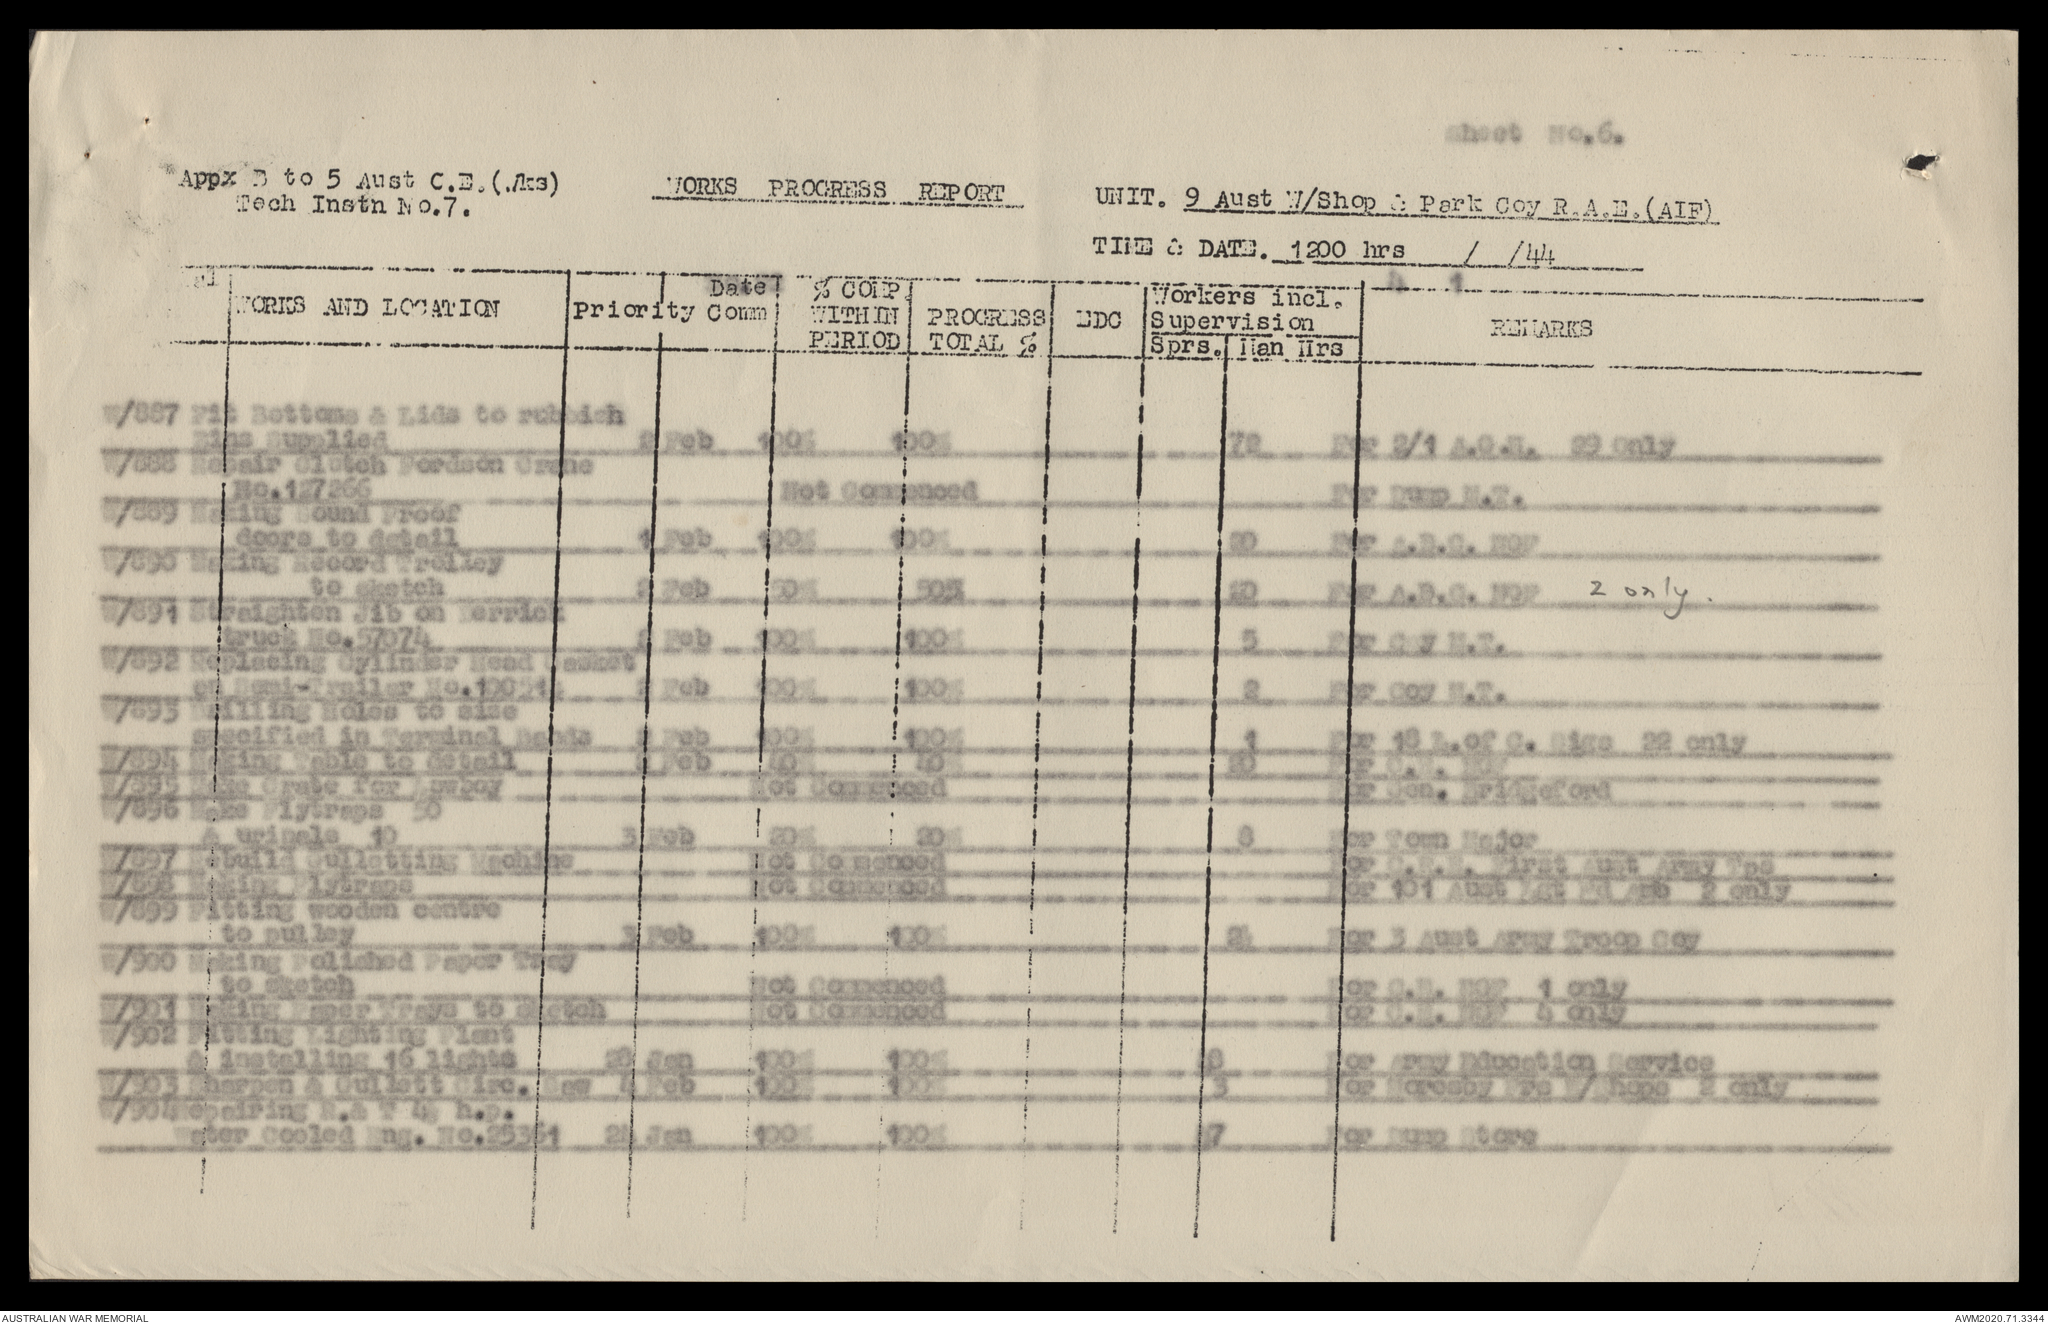 Sheet No.6.
Appx B to 5 Aust C.E.(Wks)
Tech Instn No.7.
WORKS PROGRESS REPORT
UNIT. 9 Aust W/Shop & Park Coy R.A.E.(AIF)
TIME & DATE. 1200 hrs / /44
WORKS AND LOCATION Priority Date Comm % COMP. WITHIN PERIOD PROGRESS TOTAL % EDC Workers incl. Supervision Sprs. Man Hrs REMARKS
W/887 Fit Bottoms & Lids to rubbish
Bins Supplied 2 Feb 100% 100% 72 For 2/1 A.G.H. 29 only
W/888 Repair Clutch Fordson Crane
No.127266 Not Commenced For Dump M.T.
W/889 Making Sound Proof
doors to detail 1 Feb 100% 100% 20 For A.B.C. NGF
W/890 Making Record Trolley
to sketch 2 Feb 50% 50% 10 For A.B.C. NGF 2 only.
W/891 Straighten Jib on Derrick
truck No.57074 2 Feb 100% 100% 5 For Coy M.T.
W/892 Replacing Cylinder Head Gasket
on Semi-Trailer No. 2 Feb 100% 100% 2 For Coy M.T.
W/893 Drilling Holes to size
specified in Terminal 2 Feb 100% 100% 1 For 18 L.of C. Sigs 22 only
W/894 Making Table to detail 2 Feb 40% 40% 20 For NGF
W/895 Make Crate for Lowboy Not Commenced For Gen. Bridgeford
W/896 Make Flytraps 50
& urinals 10 3 Feb 20% 20% 8 For Town Major
W/897 Rebuild Gulletting Machine Not Commenced For C.R.E. First Aust Army Tps
W/898 Making Flytraps Not Commenced For 101 Aust Fd Amb 2 only
W/899 Fitting wooden centre
to pulley 3 Feb 100% 100% 24 For 3 Aust Army Troop Coy
W/900 Making Polished Paper Tray
to sketch Not Commenced For NGF 1 only
W/901 Making Paper Trays to sketch Not Commenced For NGF 4 only
W/902 Fitting Lighting Plant
& installing 16 lights 28 Jan 100% 100% 8 For Army Education Service
W/903 Sharpen & Gullett Circ. Saw 4 Feb 100% 100% 3 For Moresby Fre W/Shops 2 only
W/904 Repairing R.& T 4½ h.p.
Water Cooled Eng. No.25361 Jan 100% 100% 7 For Dump Store
AUSTRALIAN WAR MEMORIAL
AWM2020.71.3344